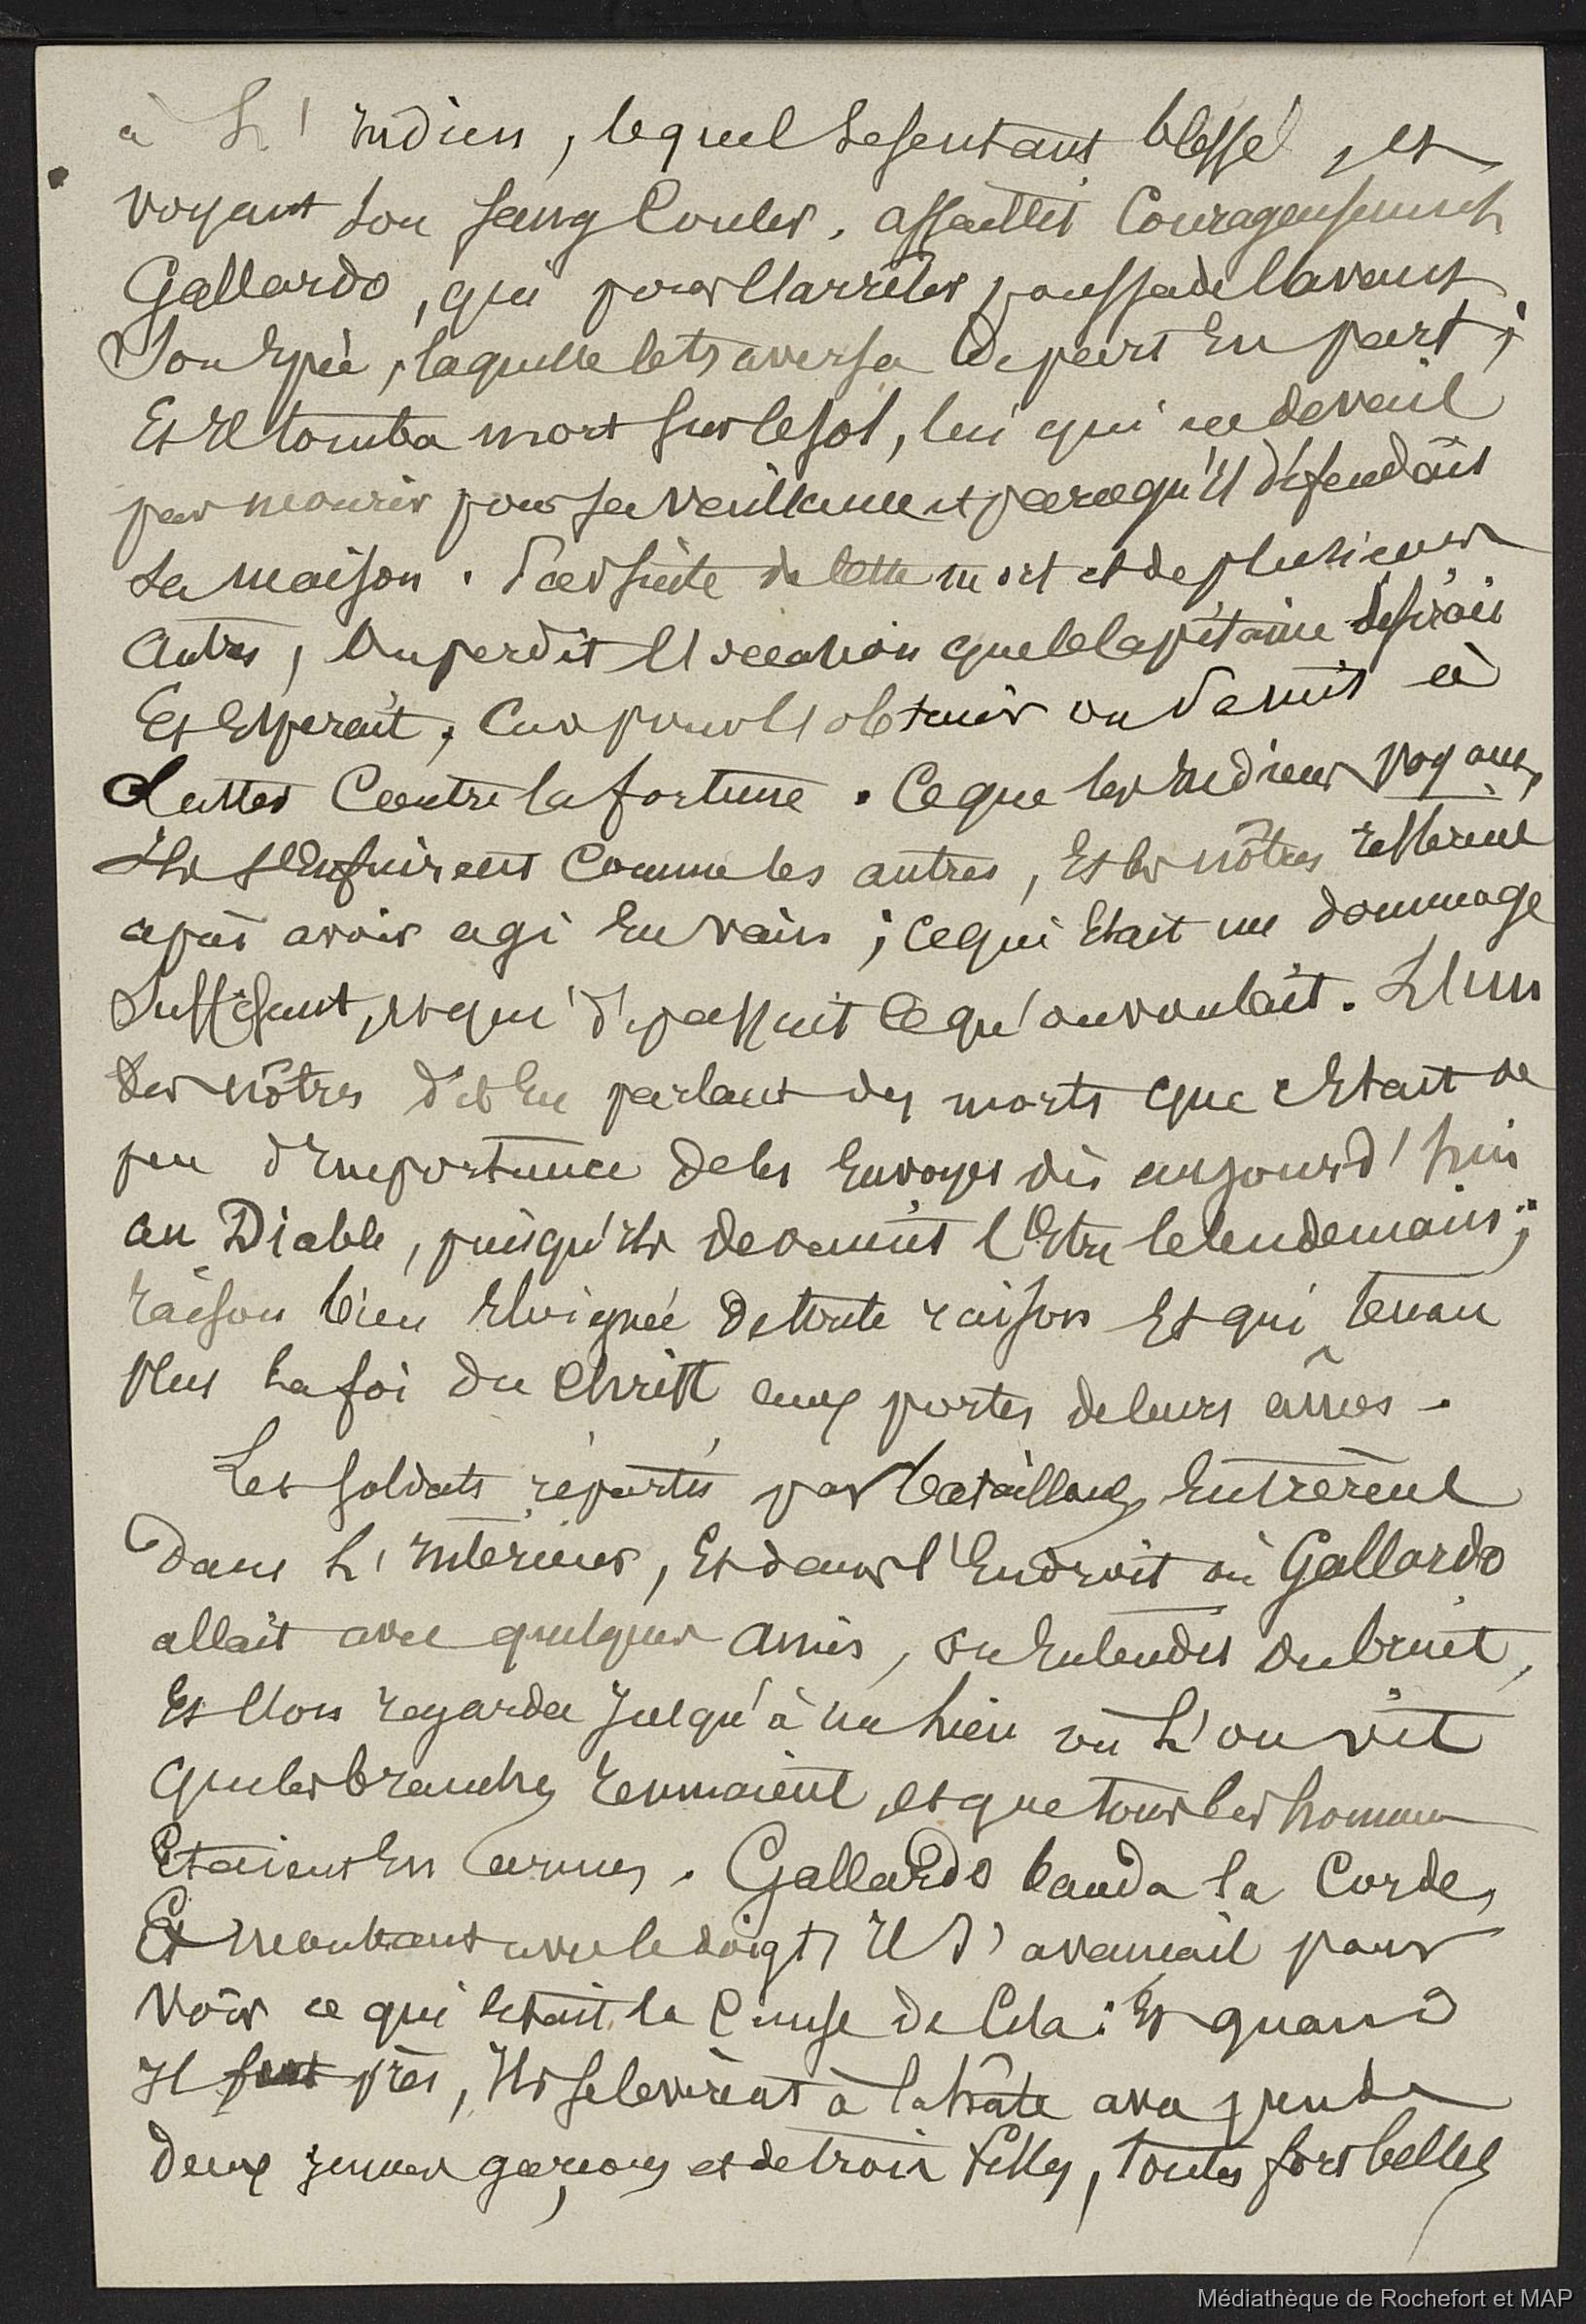 à L'Indien, lequel se sentant blessé, et
voyant son sang Couler, assaillit Courageusement
Gallardo, qui pour l'arrêter poussa de l'avant
Son Epée, laquelle le traversa de part En part ;
Et Il tomba mort sur le sol, lui qui ne devait
pas mourir pour sa vaillance et parce qu'Il défendait
sa maison. Par suite de Cette mort et de plusieurs
Autres, On perdit l'occasion que le Capitaine desirait
Et Esperait, Car pour l'obtenir on se mit à
lutter Contre la fortune. Ce que les Indiens voyant,
Ils s'Enfuirent Comme les autres, Et les nôtres restèrent
après avoir agi En vain ; Ce qui Etait un dommage
Suffisant, et qui dépassait Ce qu'on voulait. L'un
des nôtres dit En parlant des morts que c'Etait de
peu d'Importance de les Envoyer dès aujourd'hui
au Diable, puisqu'ils devaient l'Etre le lendemain ;
raison bien Eloignée de toute raison Et qui tenait
plus la foi du Christ aux portes de leurs âmes.
Les soldats répartis par bataillons, Entrèrent
Dans L'Intérieur, Et dans l'Endroit où Gallardo
allait avec quelques amis, on Entendit du bruit,
Et l'on regarda jusqu'à un lieu où L'on vit
que les branches remuaient, et que tous les hommes
Etaient En armes. Gallardo banda la Corde,
Et montrant avec le doigt, Il s'avançait pour
Voir ce qui Etait la Cause de Cela : Et quand
Il fut près, Ils se levèrent à la hâte
deux jeunes garçons et de trois filles, toutes fort belles
Médiathèque de Rochefort et MAP